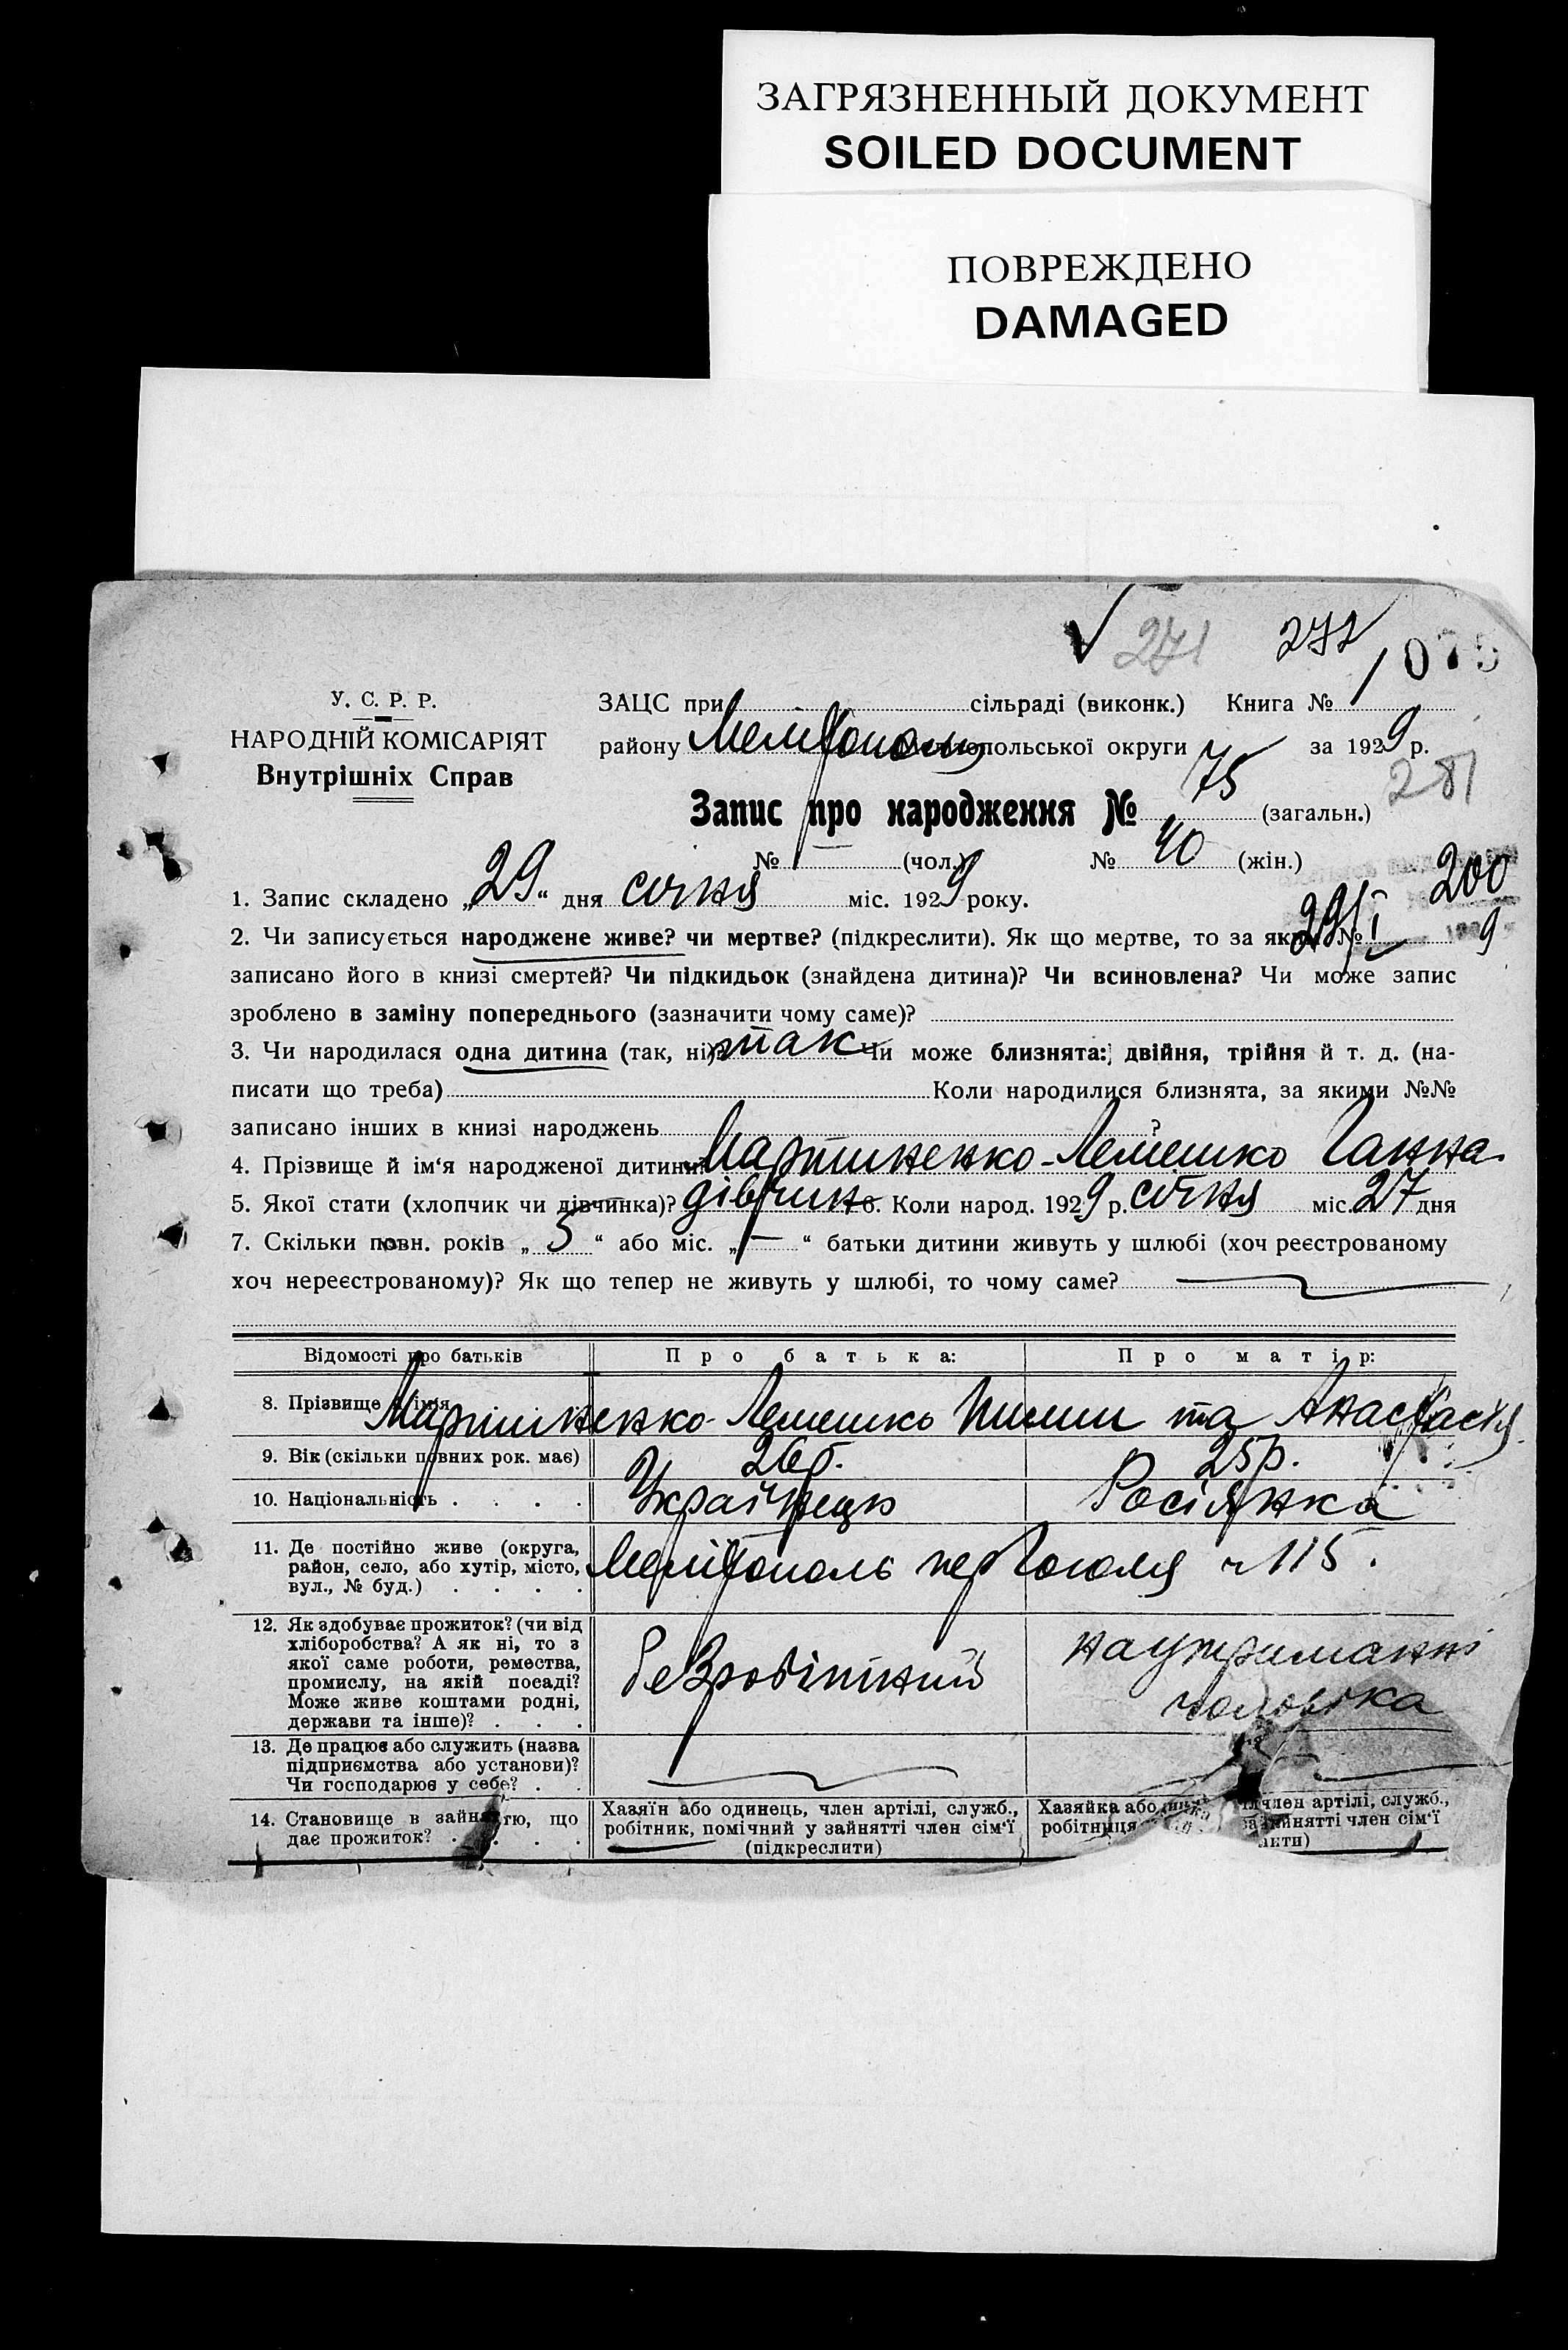 ЗАГРЯЗНЕННЫЙ ДОКУМЕНТ
SOILED DOCUMENT
ПОВРЕЖДЕНО
DAMAGED
271 272
1075
У. С. Р. Р.
НАРОДНІЙ КОМІСАРІЯТ
Внутрішніх Справ
ЗАЦС при сільраді (виконк.) Книга №
району Мелітополь опольської округи за 1929 р.
281
Запис про народження № 75 (загальн.)
№ — (чол.) № 40 (жін.)
200
1. Запис складено „29“ дня січня міс. 1929 року.
29/I 9
2. Чи записується народжене живе? чи мертве? (підкреслити). Як що мертве, то за яким №
записано його в книзі смертей? Чи підкидьок (знайдена дитина)? Чи всиновлена? Чи може запис
зроблено в заміну попереднього (зазначити чому саме)?
3. Чи народилася одна дитина (так, ні)? так Чи може близнята: двійня, трійня й т. д. (на-
писати що треба) Коли народилися близнята, за якими №№
записано інших в книзі народжень ?
4. Прізвище й ім‘я народженої дитини Мартиненко-Лемешко Ганна
5. Якої стати (хлопчик чи дівчинка)? дівчина 6. Коли народ. 1929 р. січня міс. 27 дня
7. Скільки повн. років „ 5 “ або міс. „ — “ батьки дитини живуть у шлюбі (хоч реєстрованому
хоч нереєстрованому)? Як що тепер не живуть у шлюбі, то чому саме?
Відомості про батьків Про батька: Про матір:
8. Прізвище й ім‘я Мартиненко-Лемешко Пилип та Анастасія
9. Вік (скільки повних рок. має) 26р. 25р.
10. Національність . . . . Українець Росіянка
11. Де постійно живе (округа,
район, село, або хутір, місто,
вул., № буд.) . . . .
Мелітополь пер Гоголя ч 115.
12. Як здобуває прожиток? (чи від
хліборобства? А як ні, то з
якої саме роботи, ремества,
промислу, на якій посаді?
Може живе коштами родні,
держави та інше)? . . .
безробітний
на утриманні
чоловіка
13. Де працює або служить (назва
підприємства або установи)?
Чи господарює у себе? . .
14. Становище в зайняттю, що
дає прожиток? . . . .
Хазяїн або одинець, член артілі, служб.,
робітник, помічний у зайнятті член сім‘ї
(підкреслити)
Хазяйка або член артілі, служб.,
робітниця зайнятті член сім‘ї